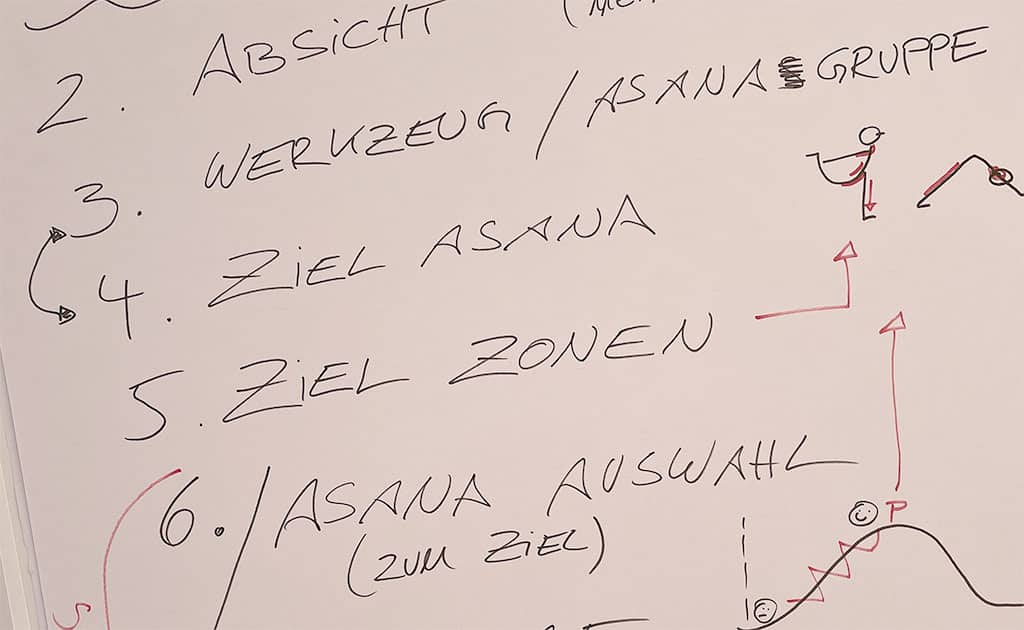 2. ABSICHT
3. WERKZEUG / ASANA GRUPPE
4. ZIEL ASANA
5. ZIEL ZONEN
6. / ASANA AUSWAHL
(ZUM ZIEL)
P